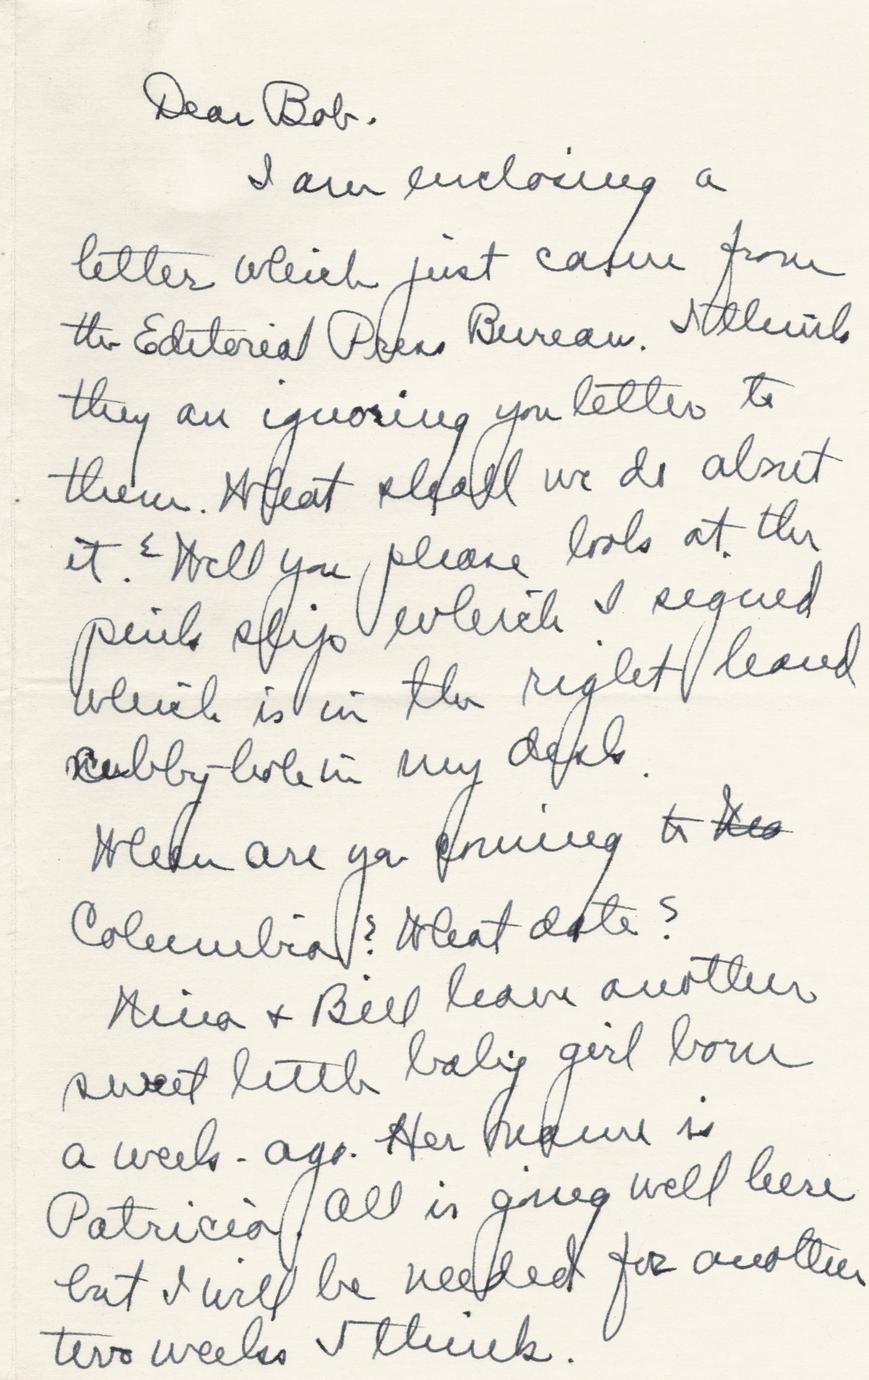 Dear Bob.
I am enclosing a
letter which just came from
the Editorial Press Bureau. I think
they are ignoring you letter to
them. What shall we do about
it? Will you please look at the
pink slip which I signed
which is in the right hand
cubby-hole in my desk.
When are you coming to
Columbia? What date?
Nina + Bill have another
sweet little baby girl born
a week - ago. Her name is
Patricia. All is going well here
but I will be needed for another
two weeks I think.